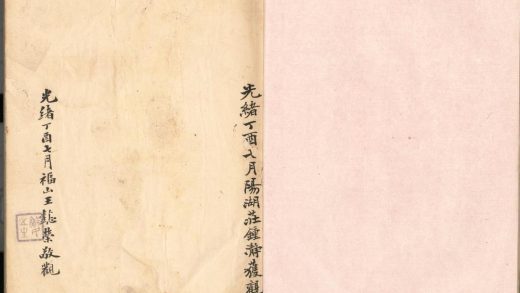 光緒丁酉七月陽湖莊鍾瀞獲觀
光緒丁酉七月福山王懿榮敬觀